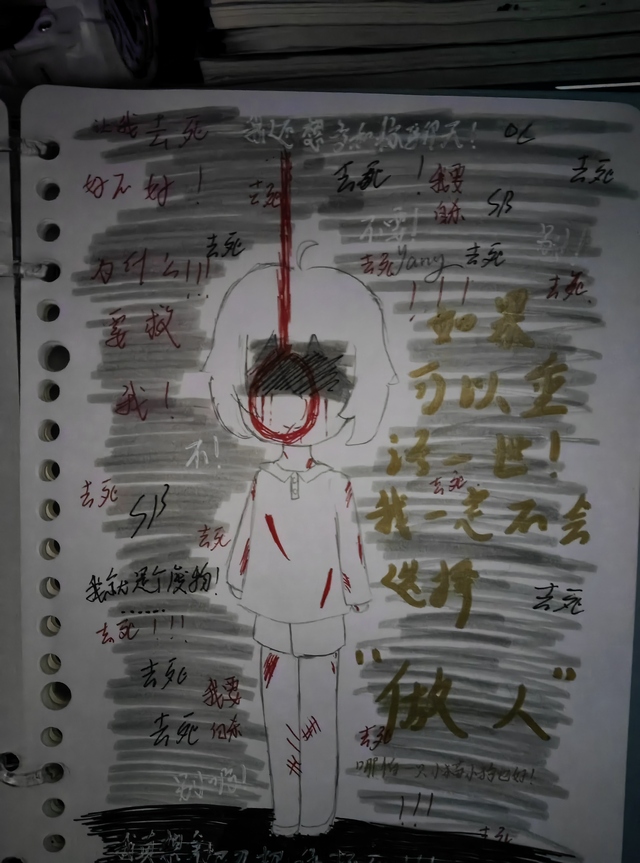 让我去死
我还想多和你聊天！
去死
好不好！
去死
去死
我要
自杀
SB
不要！
别！！
为什么！！！
去死
去死
Yang
去死
！！！
去死
要救
我！
如果
可以重
活一世！
我一定不会
选择
"做人"
不！
去死
SB
去死
去死
我就是个废物！
……
去死！！！
去死
去死
我要
自杀
去死
去死
哪怕一只小猫小狗也好！
！！！
去死